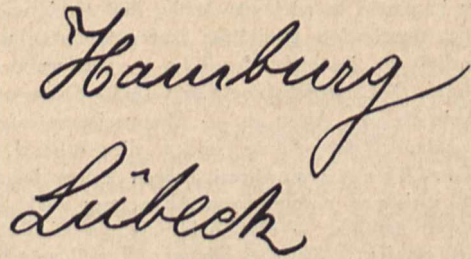 Hamburg
Lübeck